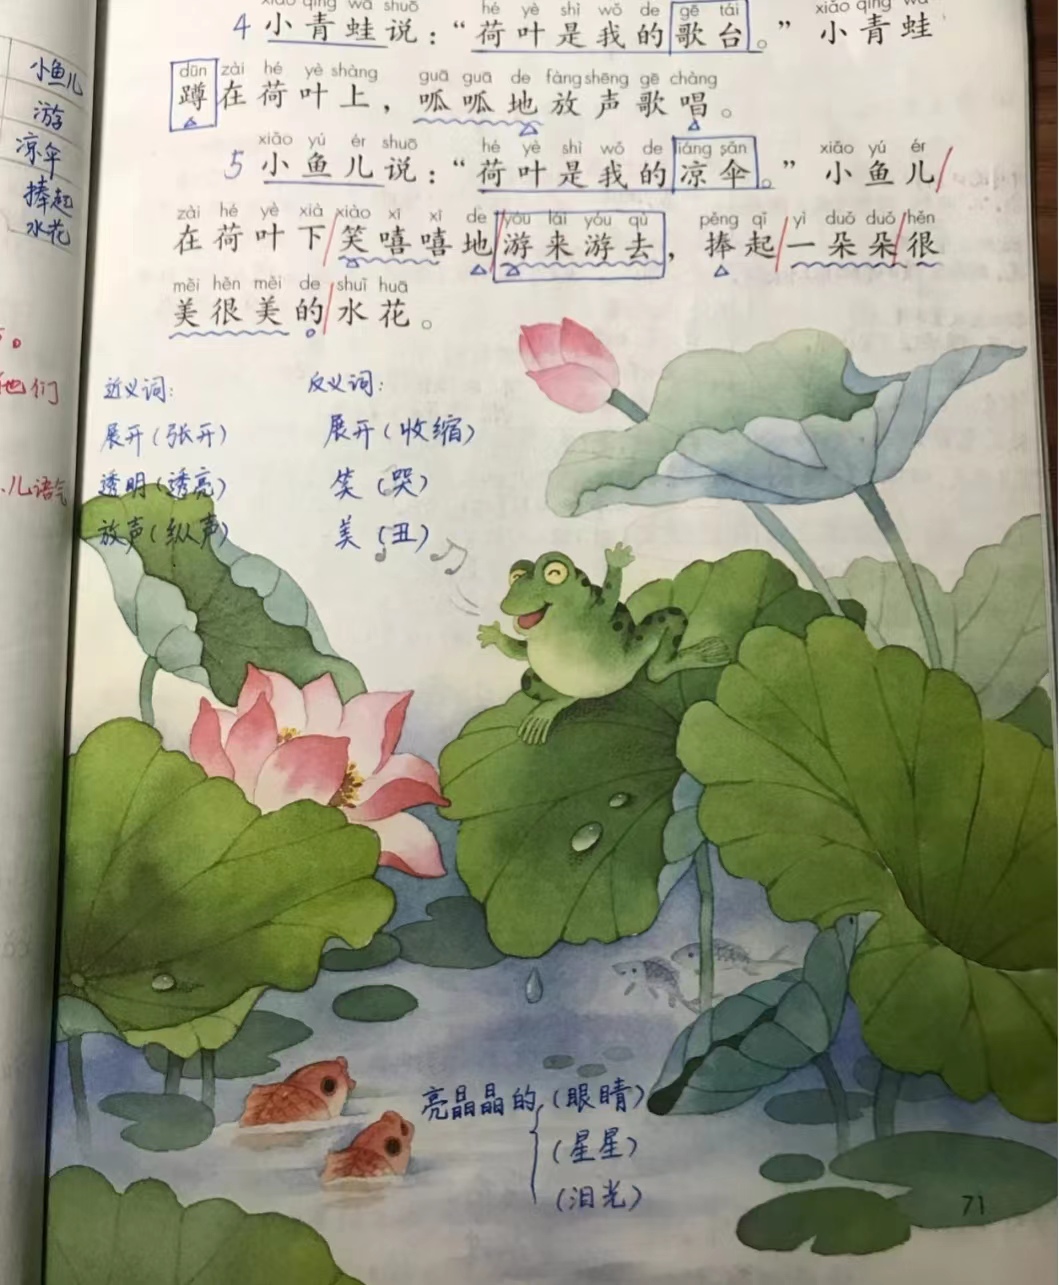 xiǎo qīng wā shuō hé yè shì wǒ de gē tái xiǎo qīng wā
4 小青蛙说：“荷叶是我的歌台。”小青蛙
dūn zài hé yè shàng guā guā de fàng shēng gē chàng
蹲在荷叶上，呱呱地放声歌唱。
xiǎo yú ér shuō hé yè shì wǒ de liáng sǎn xiǎo yú ér
5 小鱼儿说：“荷叶是我的凉伞。”小鱼儿
zài hé yè xià xiào xī xī de yóu lái yóu qù pěng qǐ yì duǒ duǒ hěn
在荷叶下笑嘻嘻地游来游去，捧起一朵朵很
měi hěn měi de shuǐ huā
美很美的水花。
小鱼儿
游
凉伞
捧起
水花
他们
儿语气
近义词： 反义词：
展开（张开） 展开（收缩）
透明（透亮） 笑（哭）
放声（纵声） 美（丑）
亮晶晶的（眼睛）
（星星）
（泪光）
71